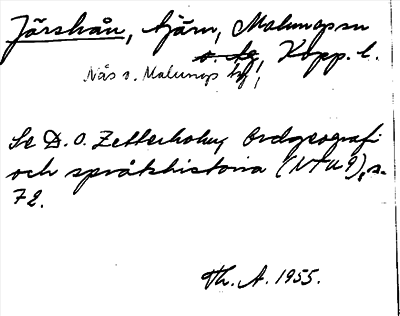 Järshån, tjärn, Malungs sn
o. tg, Kopp. l.
Nås o. Malungs tg,
Se D. O. Zetterholm, Ordgeografi
och språkhistoria (NTU 9), s.
72.
Th. A. 1955.